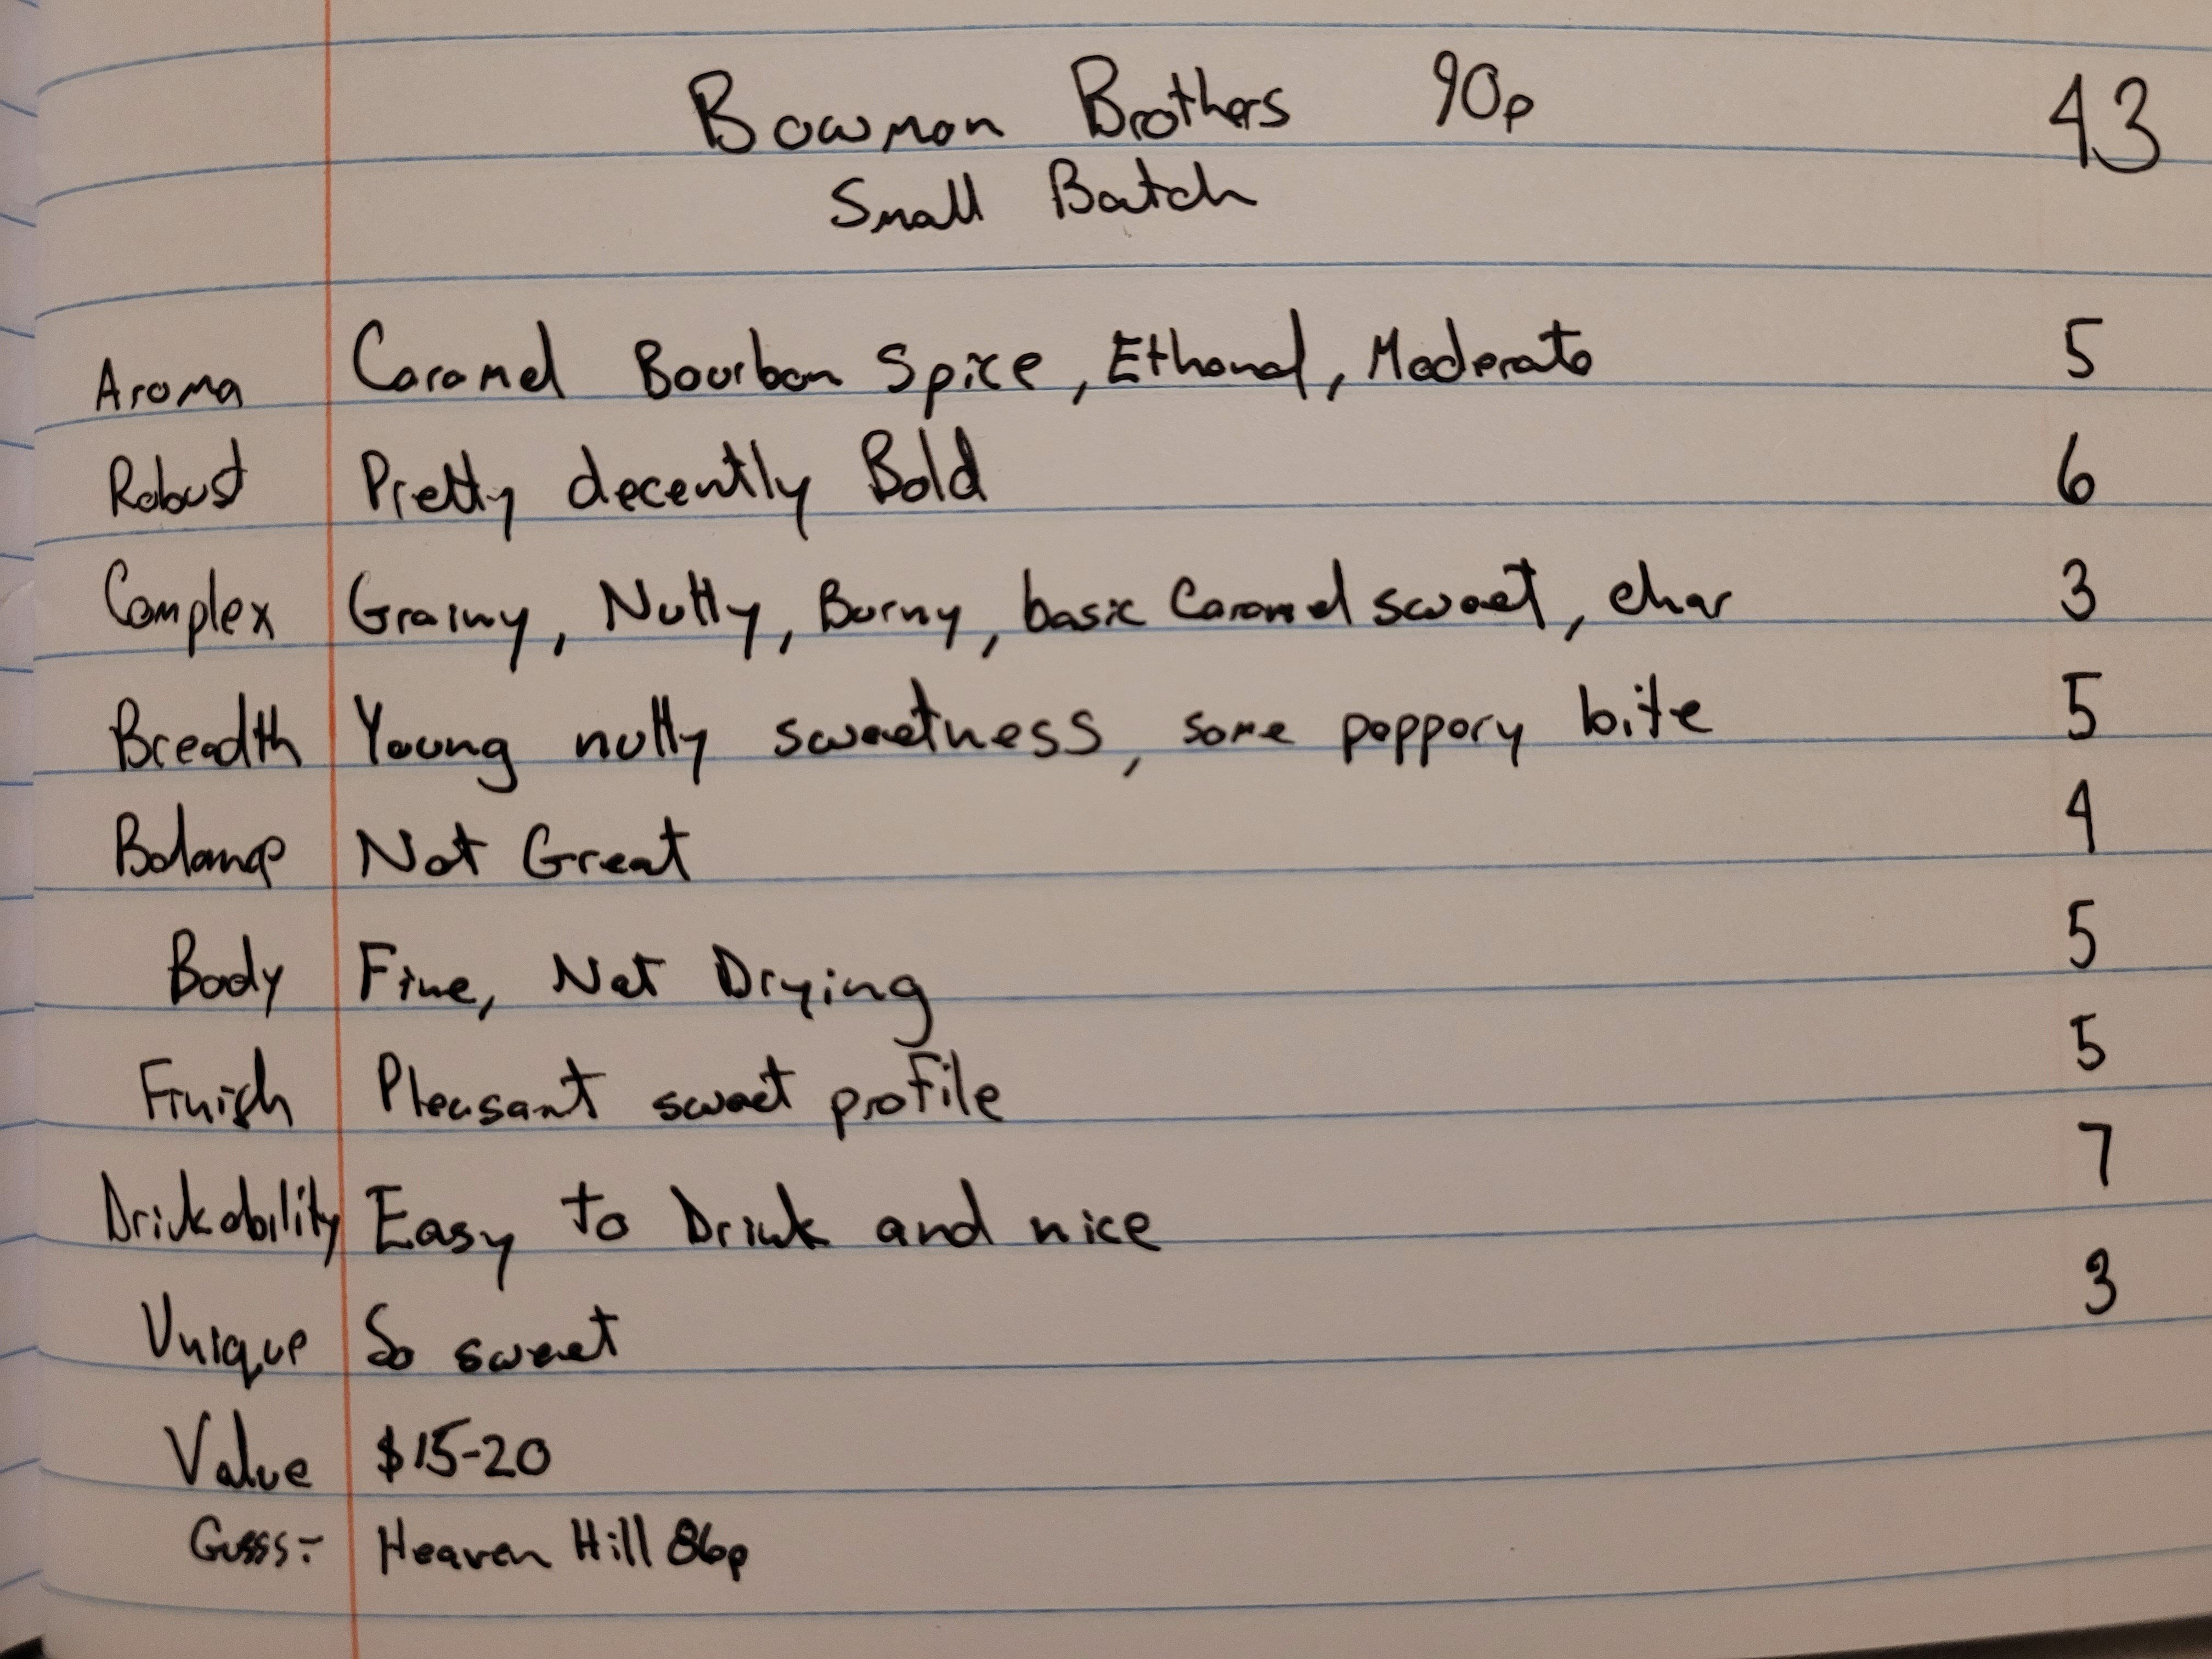 Bowman Brothers 90p 43
Small Batch
Aroma Caramel Bourbon Spice, Ethanol, Moderate 5
Robust Pretty decently Bold 6
Complex Grainy, Nutty, Burny, basic Caramel sweet, char 3
Breadth Young nutty sweetness, some peppery bite 5
Balance Not Great 4
Body Fine, Not Drying 5
Finish Pleasant sweet profile 5
Drinkability Easy to Drink and nice 7
Unique So sweet 3
Value $15-20
Guess:- Heaven Hill 86p